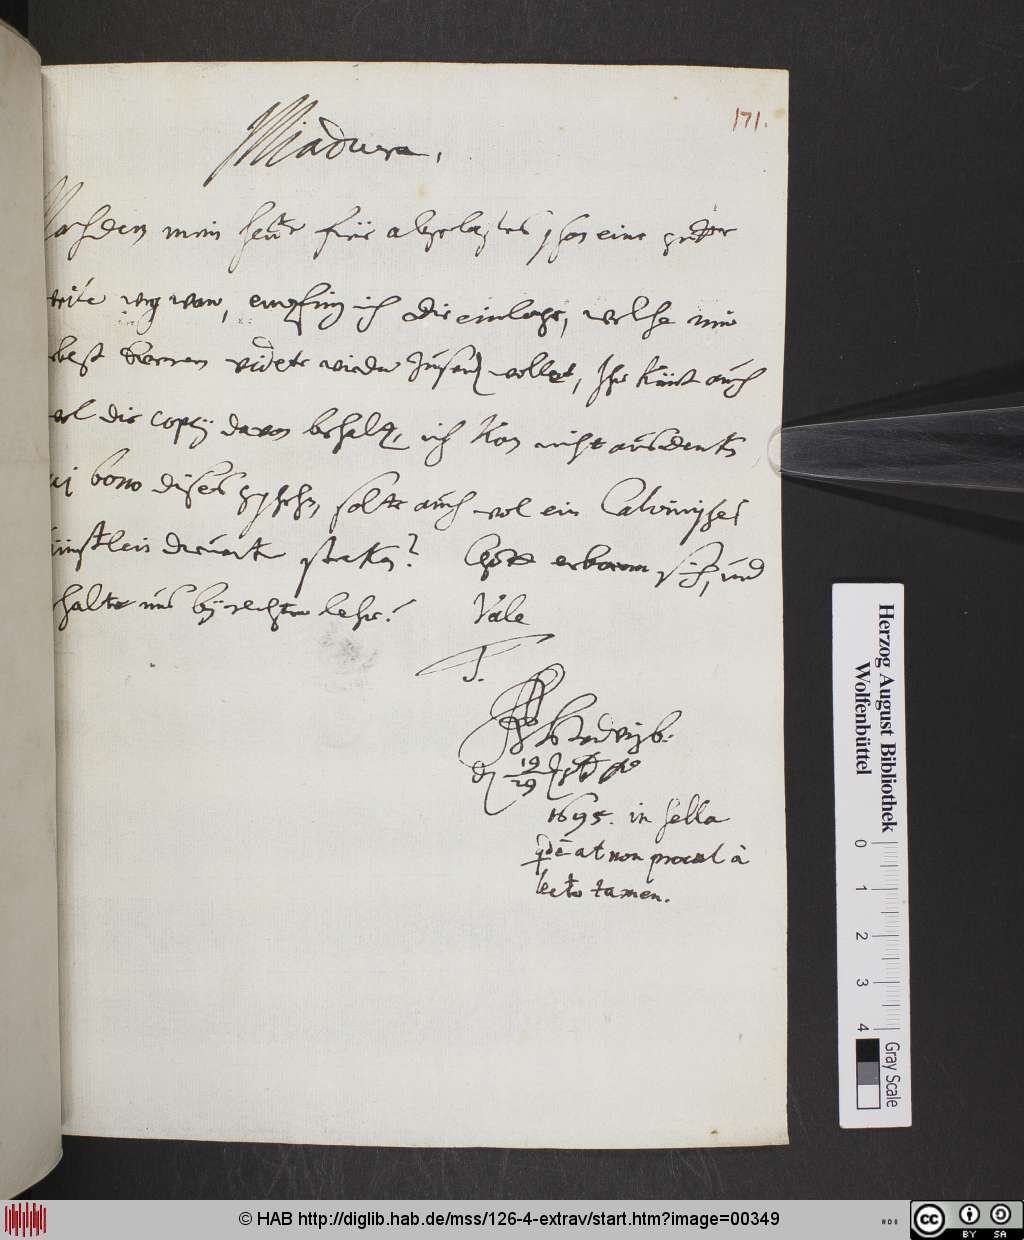 171.
Madura,
Nachdem mein heut früe abgelaßnes schon eine gute
weile weg war, empfing ich die einlage, welche mir
nebst wieder zusend wollet, Ihr könt auch
wol die copij davon behalt, ich kan nicht ausdenken
cui bono dises geschehe, solte auch wol ein Calvinisches
künstlein darunter steken? Gott erbarm sich, und
erhalte uns bej rechter lehr! Vale
T.
d 19/29
1695. in sella
qdē at non procul à
lecto tamen.
Herzog August Bibliothek
Wolfenbüttel
0 1 2 3 4
Gray Scale
© HAB http://diglib.hab.de/mss/126-4-extrav/start.htm?image=00349
cc BY SA